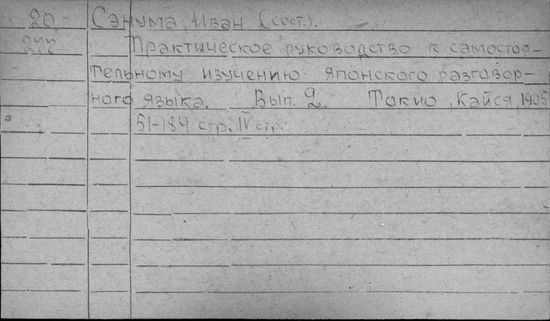 20 Сэнума, Иван (сост.).
277 Практическое руководство к самостоя-
тельному изучению японского разговор-
ного языка. Вып. 2. Токио, Кайся, 1905
51-184 стр. IV стр.